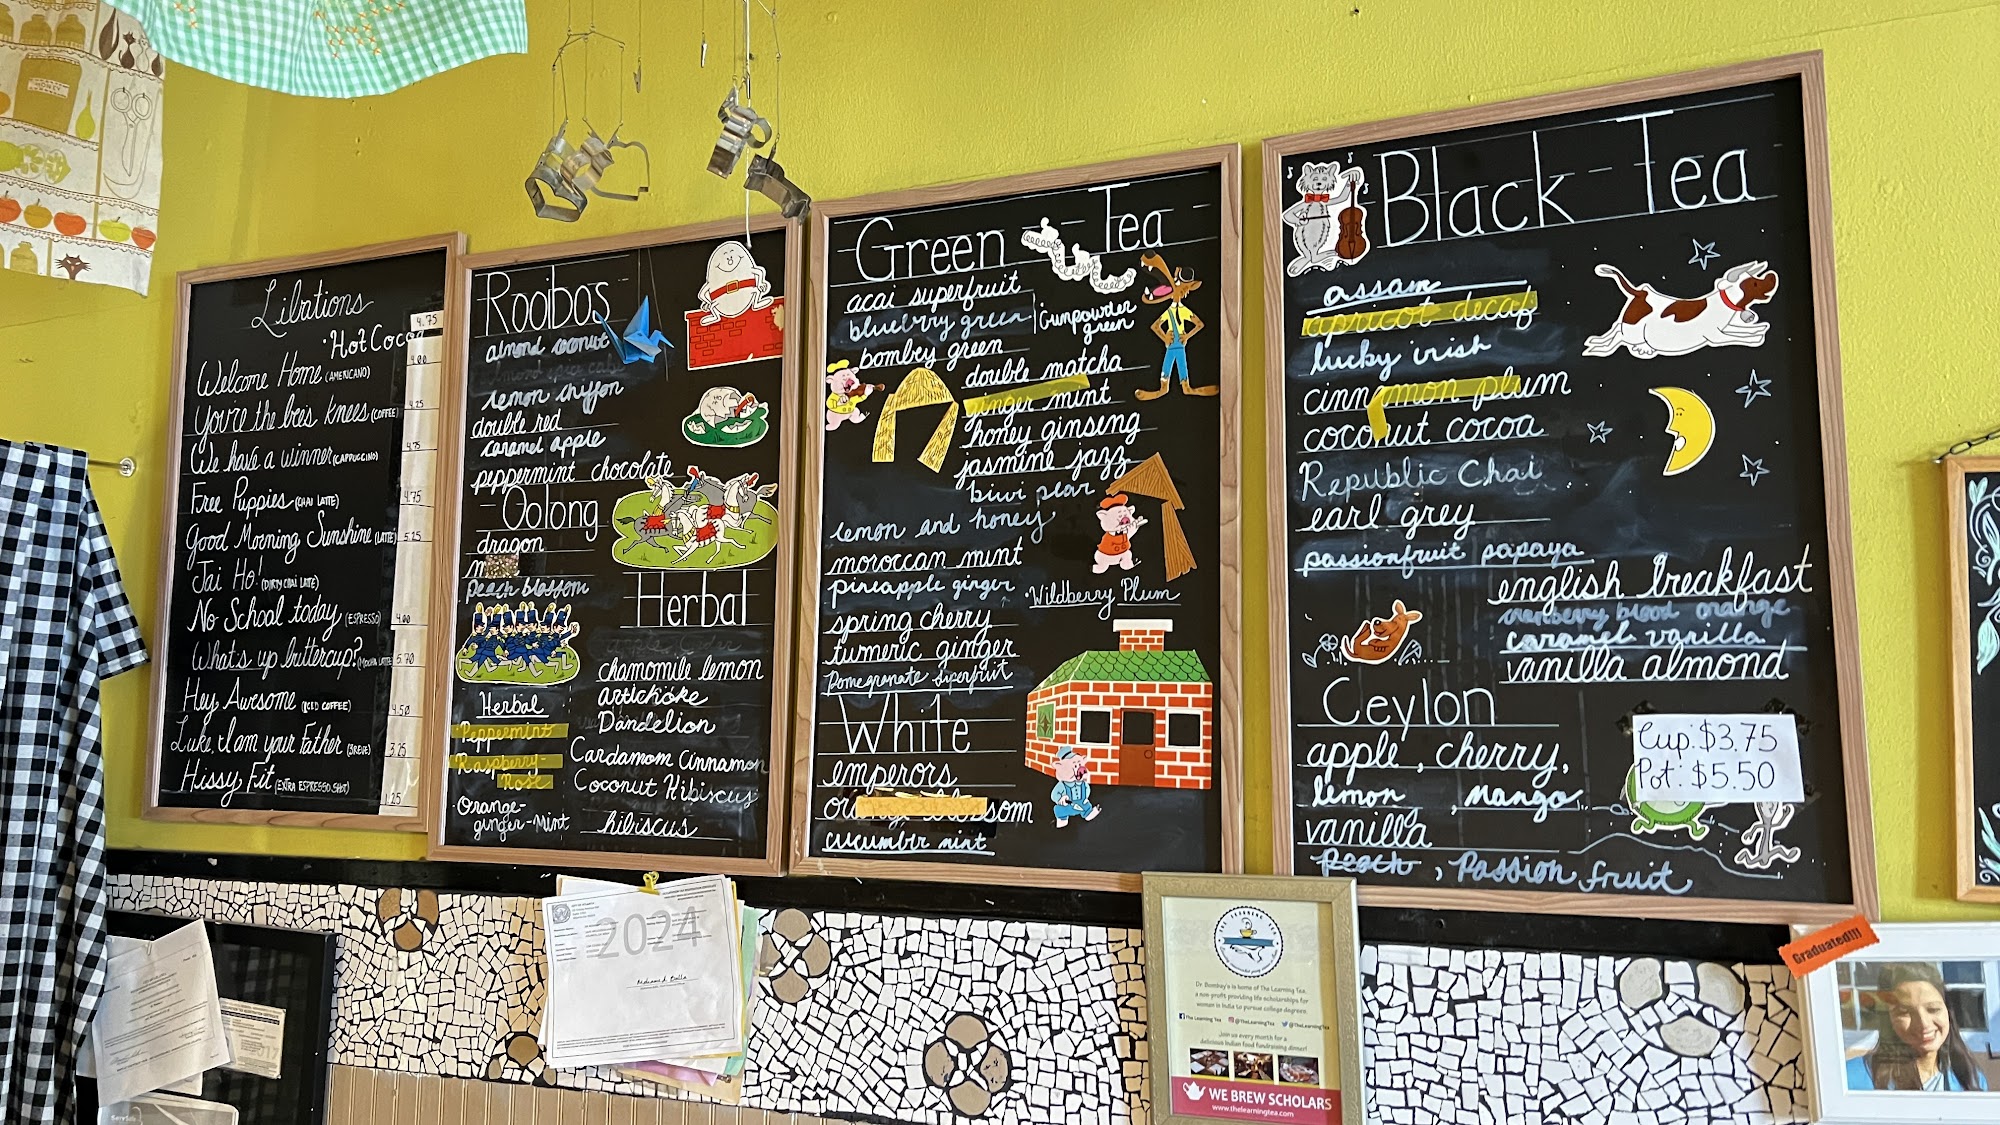 Libations
• Hot Cocoa 4.75
Welcome Home (AMERICANO) 4.00
You're the bee's knees (COFFEE) 4.25
We have a winner (CAPPUCCINO) 4.75
Free Puppies (CHAI LATTE) 4.75
Good Morning Sunshine (LATTE) 5.25
Jai Ho! (DIRTY CHAI LATTE)
No School today (ESPRESSO) 4.00
What's up buttercup? (MOCHA LATTE) 5.70
Hey Awesome (ICED COFFEE) 4.50
Luke, I am your Father (BREVE) 3.25
Hissy Fit (EXTRA ESPRESSO SHOT) 1.25
Rooibos
almond coconut
lemon chiffon
double red
caramel apple
peppermint chocolate
- Oolong
dragon
peach blossom
Herbal
chamomile lemon
artichoke
Dandelion
Cardamom Cinnamon
Coconut Hibiscus
hibiscus
Herbal
Peppermint
Raspberry-
Rose
Orange-
ginger-Mint
Green - Tea
acai superfruit
blueberry green
Gunpowder
green
bombey green
double matcha
ginger mint
honey ginseng
jasmine jazz
biwi pear
lemon and honey
moroccan mint
pineapple ginger
• Wildberry Plum
spring cherry
turmeric ginger
Pomegranate Superfruit
White
emperors
cucumber mint
Black Tea
assam
apricot decaf
lucky irish
cinnamon plum
coconut cocoa
Republic Chai
earl grey
passionfruit papaya
english breakfast
cranberry blood orange
caramel vanilla
vanilla almond
Ceylon
apple, cherry,
lemon, mango
vanilla
Peach, Passion fruit
Cup: $3.75
Pot: $5.50
2024
HONEY
Dr. Bombay's is home of The Learning Tea,
a non-profit providing life scholarships for
women in India to pursue college degrees.
The Learning Tea @TheLearningTea @TheLearningTea
Join us every month for a
delicious Indian food fundraising dinner!
WE BREW SCHOLARS
www.thelearningtea.com
Graduated!!!